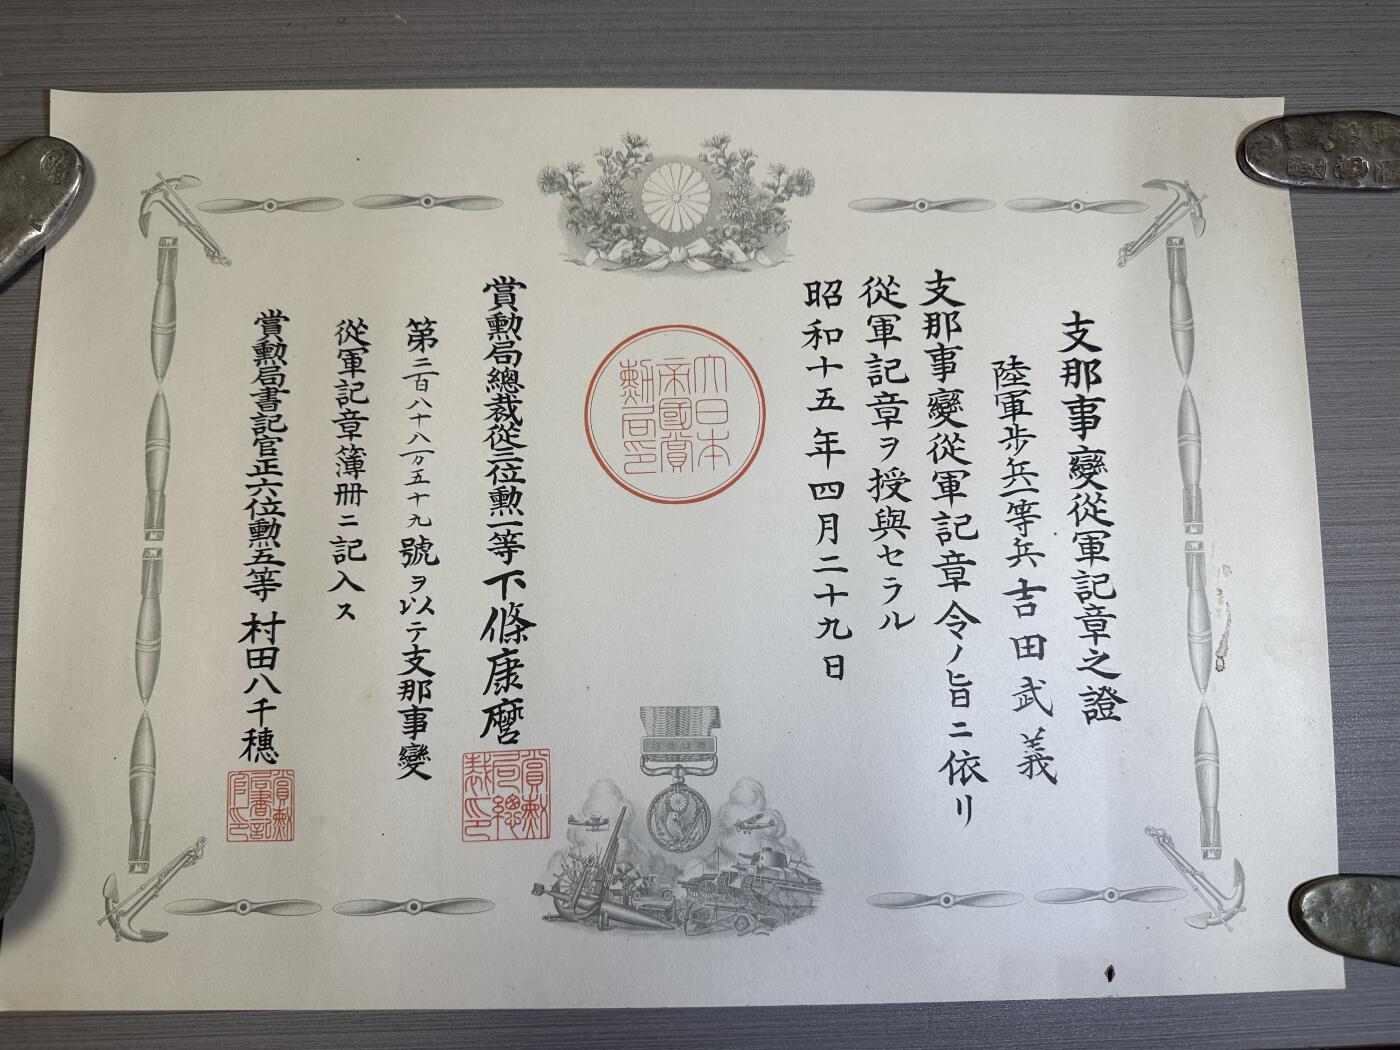 支那事變從軍記章之證
陸軍步兵一等兵 吉田武義
支那事變從軍記章令ノ旨ニ依リ
從軍記章ヲ授與セラル
昭和十五年四月二十九日
大日本
帝國賞
勲局印
賞勲局總裁從三位勲一等下條康麿
賞勲
局總
裁印
第二百八十八万五十九號ヲ以テ支那事變
從軍記章簿冊ニ記入ス
賞勲局書記官正六位勲五等 村田八千穗
賞勲
局書記
官印